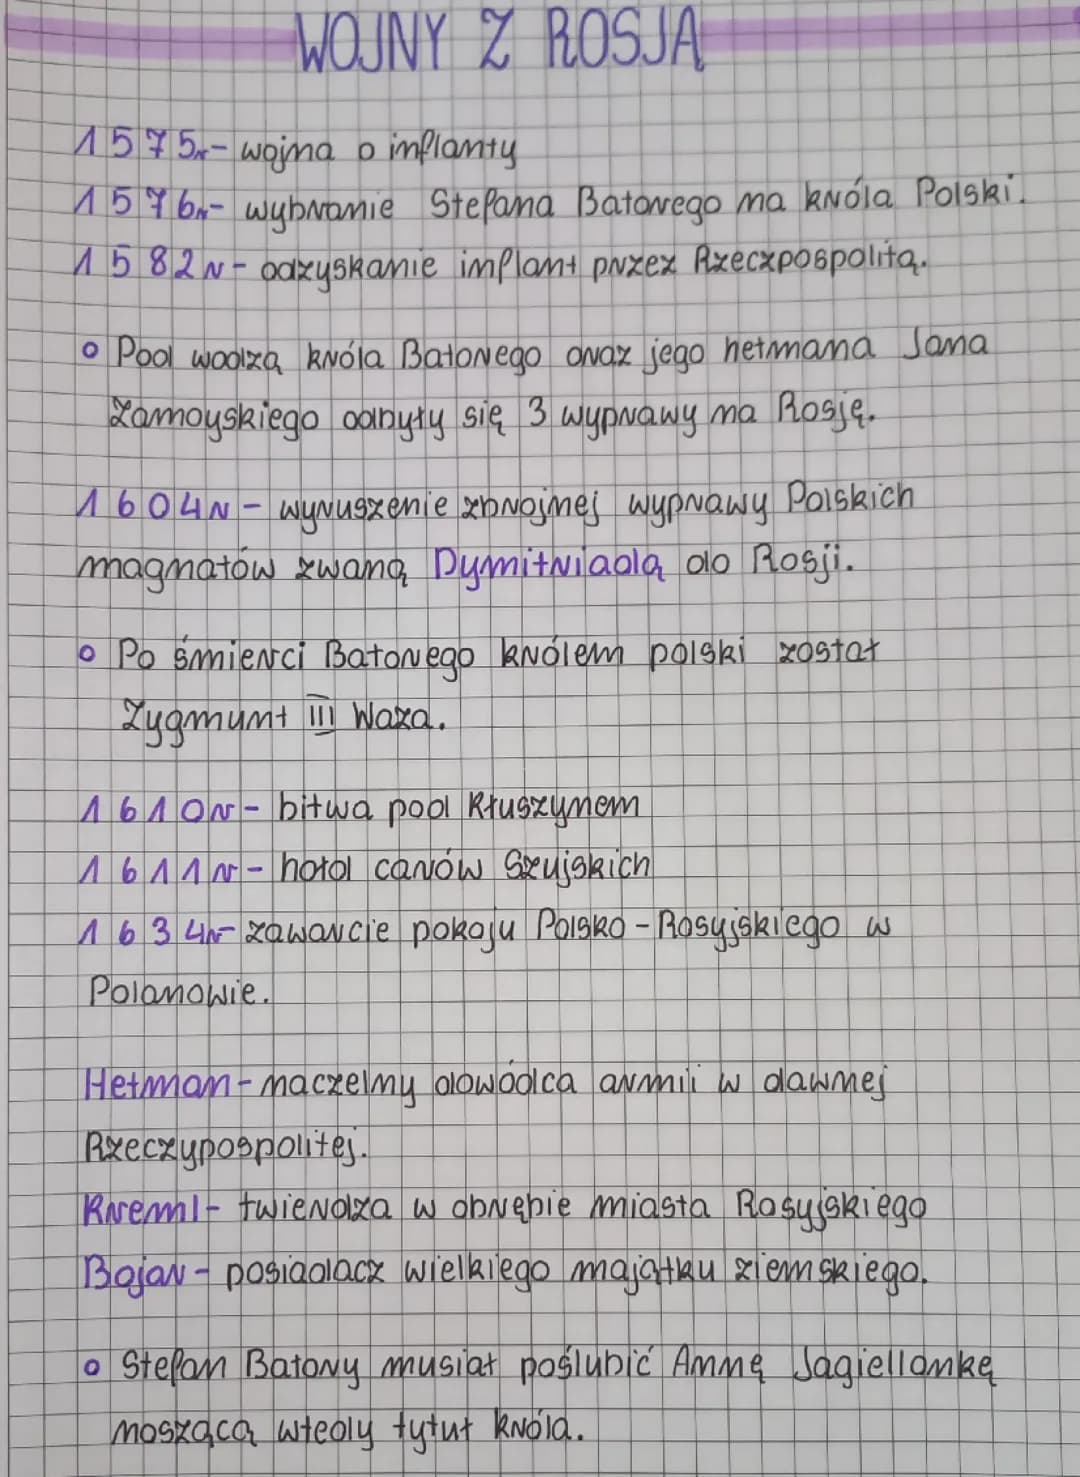 WOJNY Z ROSJĄ
1575r- wojna o inflanty
1576r- wybranie Stefana Batorego na króla Polski.
1582r- odzyskanie inflant przez Rzeczpospolitą.
○ Pod wodzą króla Batorego oraz jego hetmana Jana
Zamoyskiego odbyły się 3 wyprawy na Rosję.
1604r- wyruszenie zbrojnej wyprawy Polskich
magnatów zwaną Dymitriadą do Rosji.
○ Po śmierci Batorego królem polski został
Zygmunt III Waza.
1610r- bitwa pod Kłuszynem
1611r- hołd carów Szujskich
1634r- zawarcie pokoju Polsko-Rosyjskiego w
Polanowie.
Hetman- naczelny dowódca armii w dawnej
Rzeczypospolitej.
Kreml- twierdza w obrębie miasta Rosyjskiego
Bojar- posiadacz wielkiego majątku ziemskiego.
○ Stefan Batory musiał poślubić Annę Jagiellonkę
noszącą wtedy tytuł króla.